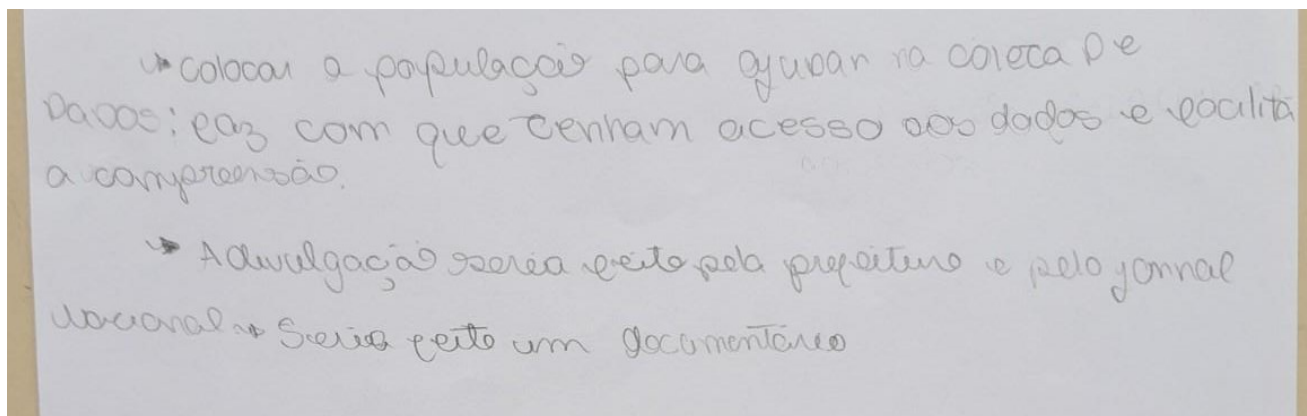 → colocar a população para ajudar na coleta de
dados: faz com que tenham acesso aos dados e facilita
a compreensão.
→ A divulgação seria feito pela prefeitura e pelo jornal
nacional → Seria feito um documentário